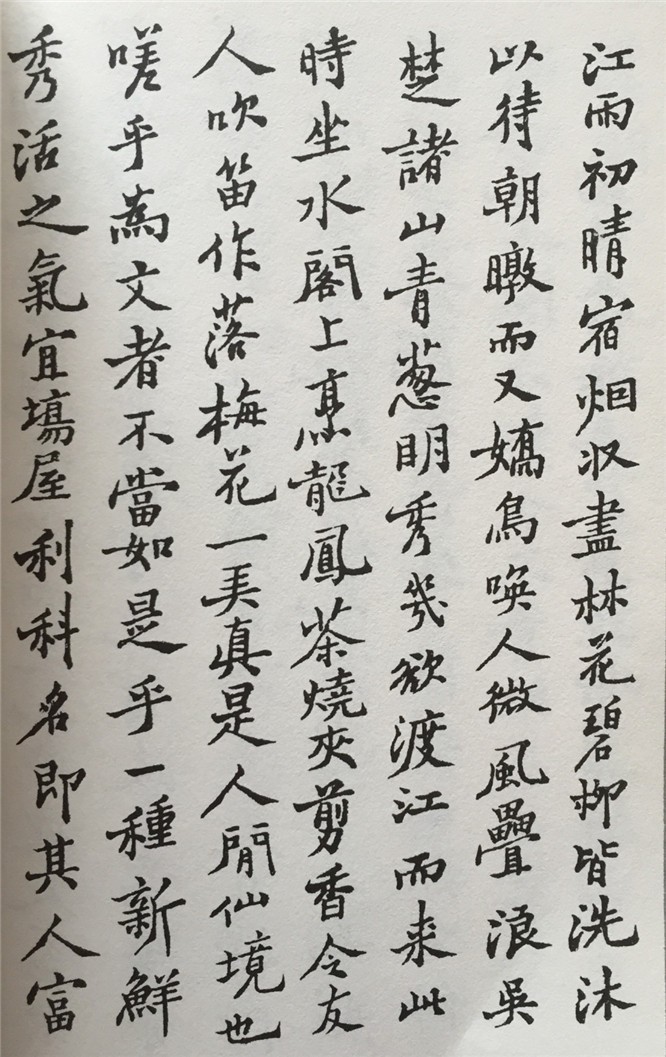 江雨初晴宿烟收盡林花碧柳皆洗沐
以待朝暾而又嬌鳥喚人微風疊浪吳
楚諸山青葱明秀幾欲渡江而來此
時坐水閣上烹龍鳳茶燒夾剪香令友
人吹笛作落梅花一弄真是人間仙境也
嗟乎為文者不當如是乎一種新鮮
秀活之氣宜塲屋利科名即其人富